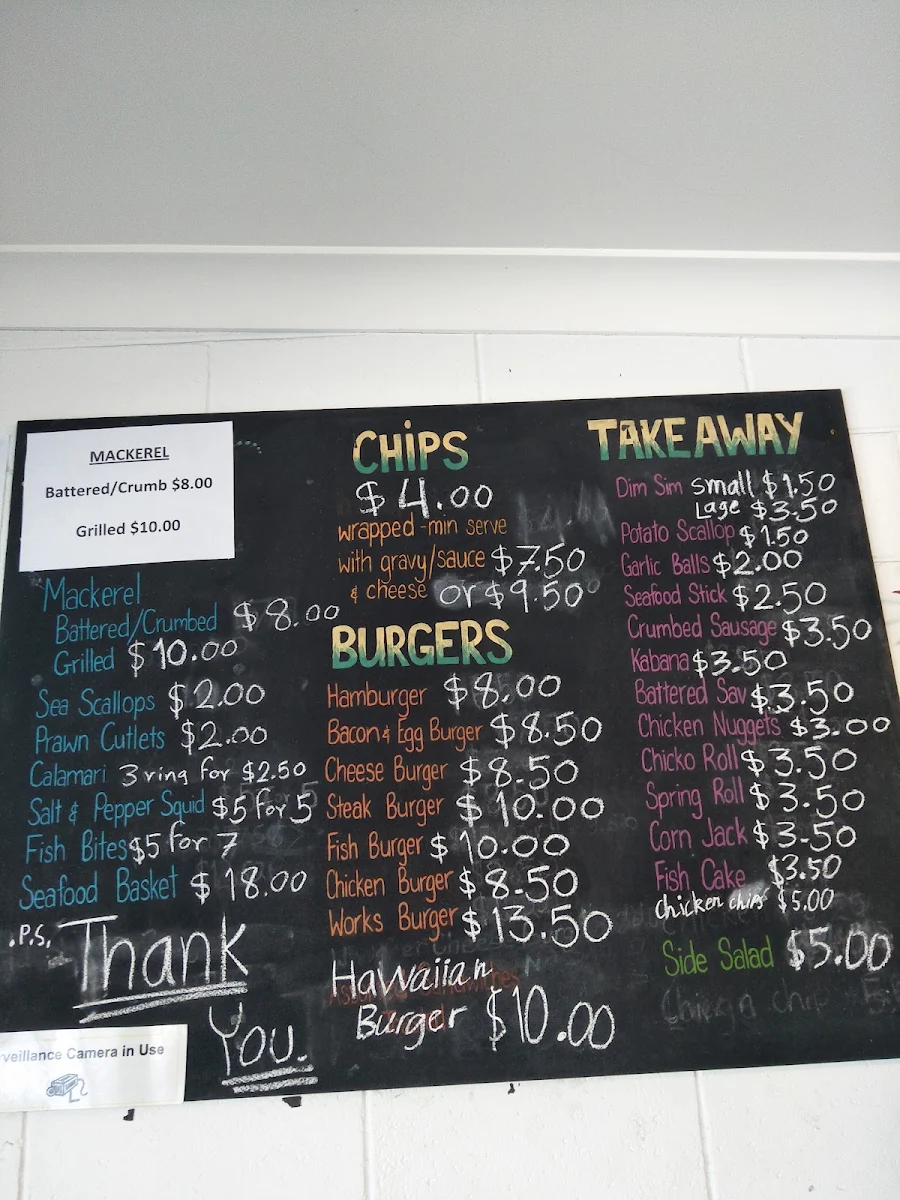 MACKEREL
Battered/Crumb $8.00
Grilled $10.00
Mackerel
Battered/Crumbed $8.00
Grilled $10.00
Sea Scallops $2.00
Prawn Cutlets $2.00
Calamari 3 ring for $2.50
Salt & Pepper Squid $5 for 5
Fish Bites $5 for 7
Seafood Basket $18.00
.P.S. Thank
You.
rveillance Camera in Use
CHIPS
$4.00
wrapped -min serve
with gravy/sauce $7.50
& cheese or $9.50
BURGERS
Hamburger $8.00
Bacon & Egg Burger $8.50
Cheese Burger $8.50
Steak Burger $10.00
Fish Burger $10.00
Chicken Burger $8.50
Works Burger $13.50
Hawaiian
Burger $10.00
TAKEAWAY
Dim Sim small $1.50
Lage $3.50
Potato Scallop $1.50
Garlic Balls $2.00
Seafood Stick $2.50
Crumbed Sausage $3.50
Kabana $3.50
Battered Sav $3.50
Chicken Nuggets $3.00
Chicko Roll $3.50
Spring Roll $3.50
Corn Jack $3.50
Fish Cake $3.50
chicken chips $5.00
Side Salad $5.00